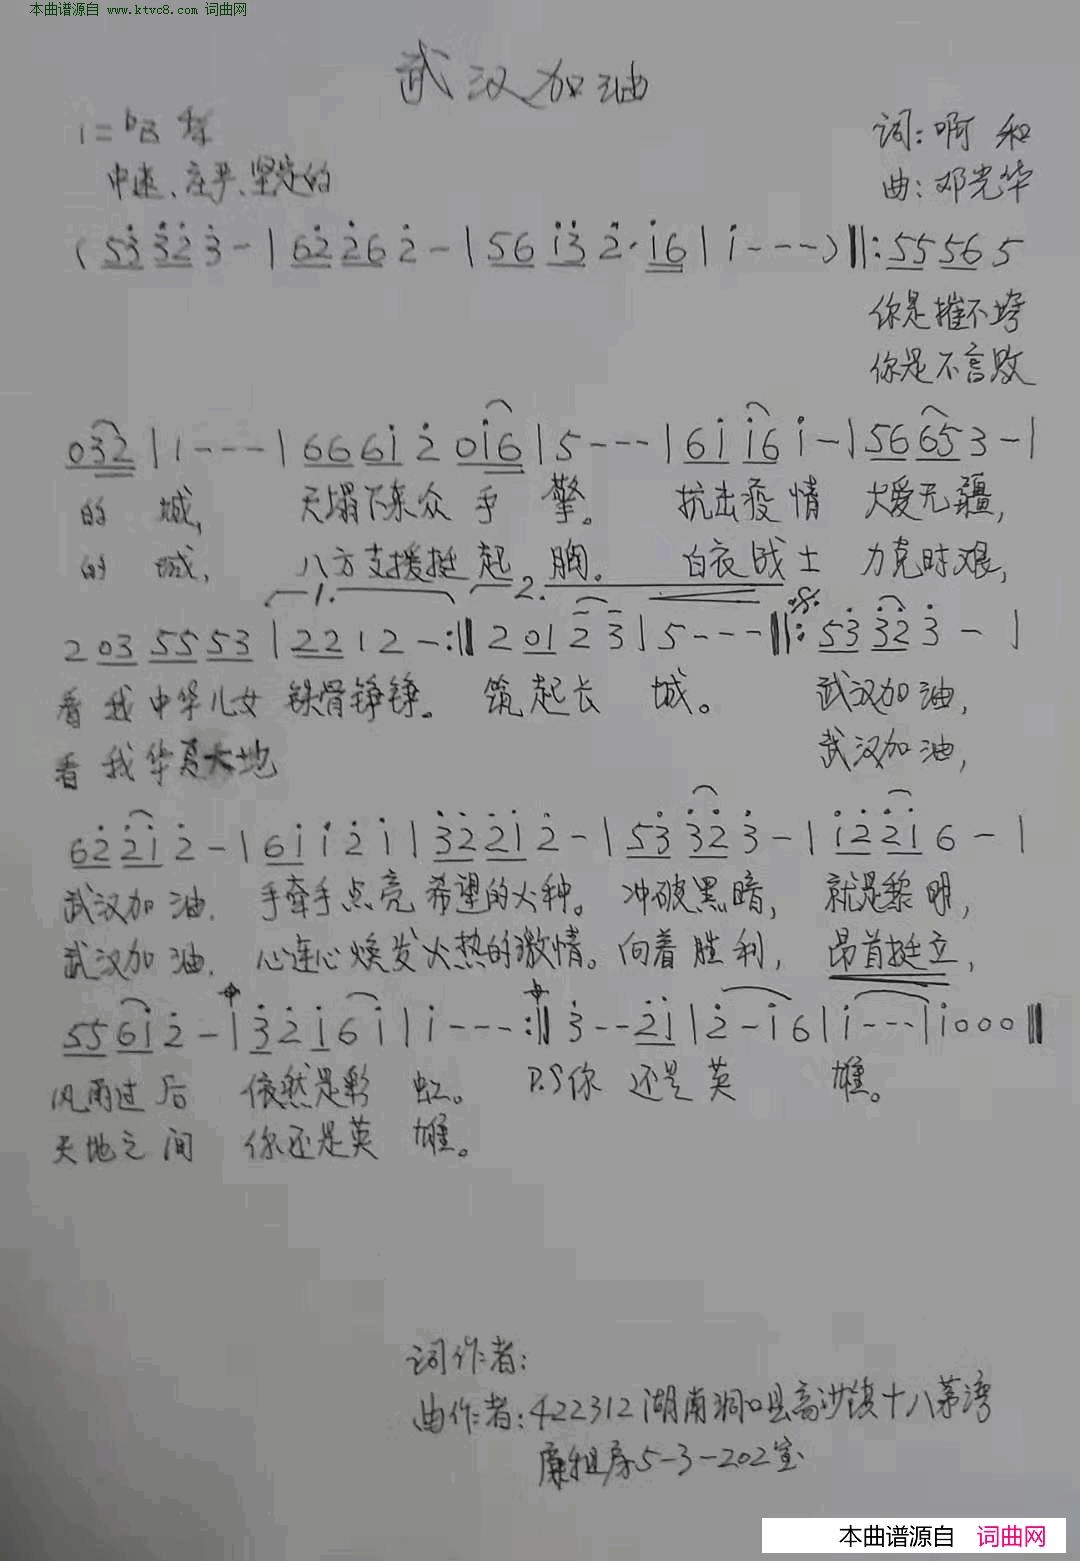 本曲谱源自 www.ktvc8.com 词曲网
武汉加油
1=bB 4/4
词:啊 和
中速、庄严、坚定的
曲:邓光华
(53 323-|62262-|56 132·16|1---)‖:55565
你是摧不垮
你是不言败
032|1---|66612 016|5---|61161-|56653-|
的 城, 天塌下来众手 擎。 抗击疫情 大爱无疆,
的 城, 八方支援挺起 胸。 白衣战士 力克时艰,
1. 2.
203 55 53|2212-:‖201 23|5---‖:53 323-|
看我中华儿女 铁骨铮铮。 筑起长 城。 武汉加油,
看我华夏大地 武汉加油,
62212-|61121|32212-|53 323-|12216-|
武汉加油. 手牵手点亮 希望的火种。 冲破黑暗, 就是黎明,
武汉加油. 心连心焕发火热的激情。向着胜利, 昂首挺立,
55612-|32161|1---:‖3--21|2-16|1---|1000‖
风雨过后 依然是彩 虹。 D.S你 还是英 雄。
天地之间 你还是英 雄。
词作者:
曲作者:422312湖南洞口县高沙镇十八茅湾
廉租房5-3-202室
本曲谱源自 词曲网